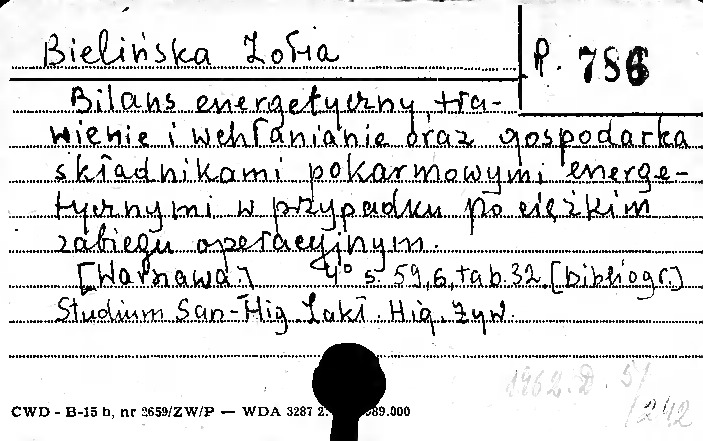 Bielińska Zofia
P. 786
Bilans energetyczny, tra-
wienie i wchłanianie oraz gospodarka
składnikami pokarmowymi energe-
tycznymi w przypadku po ciężkim
zabiegu operacyjnym.
[Warszawa] 4° s. 59,6, tab. 32, [bibliogr.]
Studium San-Hig. Zakł. Hig. Żyw.
1962. D. 5/
/242
CWD - B-15 b, nr 3659/ZW/P — WDA 3287 089.000